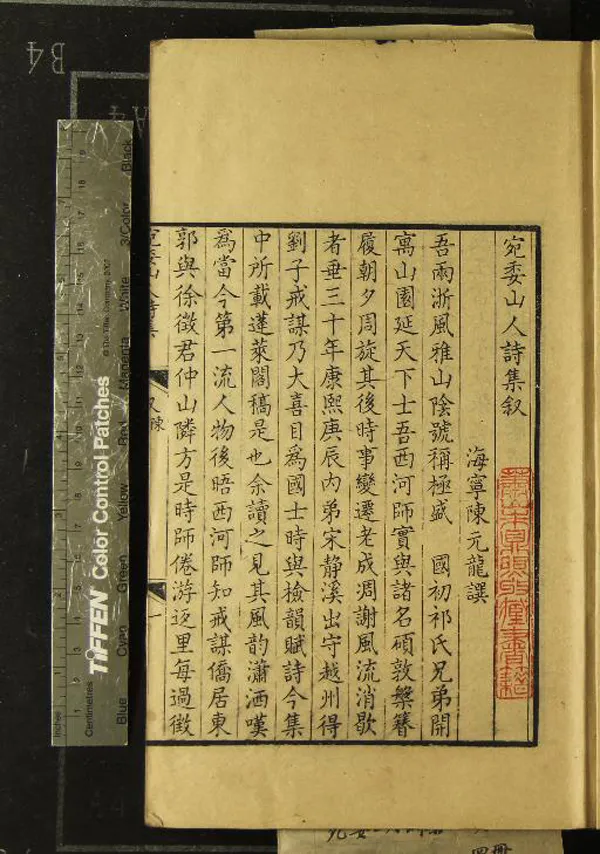 宛委山人詩集叙
海寧陳元龍譔
吾兩浙風雅山陰號稱極盛　國初祁氏兄弟開
寓山園延天下士吾西河師實與諸名碩敦槃簪
履朝夕周旋其後時事變遷老成凋謝風流消歇
者垂三十年康熙庚辰内弟宋靜溪出守越州得
劉子戒謀乃大喜目為國士時與檢韻賦詩今集
中所載蓬萊閣稿是也余讀之見其風韵瀟洒嘆
為當今第一流人物後晤西河師知戒謀僑居東
郭與徐徵君仲山隣方是時師倦游返里每過徵
宛委山人詩集
陳
一
B4
A4
TIFFEN Color Control Patches
© The Tiffen Company, 2007
Inches
Centimetres
Blue
Cyan
Green
Yellow
Red
Magenta
White
3/Color
Black
四冊